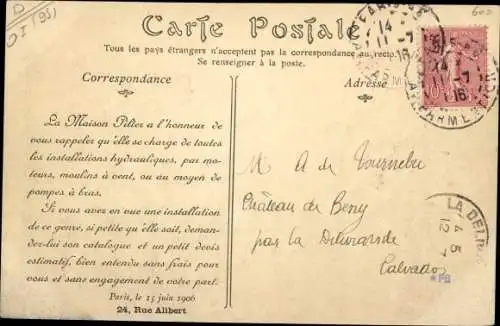 Carte Postale
Tous les pays étrangers n'acceptent pas la correspondance au recto.
Se renseigner à la poste.
Correspondance
Adresse
La Maison Pilter a l'honneur de
vous rappeler qu'elle se charge de toutes
les installations hydrauliques, par mo-
teurs, moulins à vent, ou au moyen de
pompes à bras.
Si vous avez en vue une installation
de ce genre, si petite qu'elle soit, deman-
dez-lui son catalogue et un petit devis
estimatif, bien entendu sans frais pour
vous et sans engagement de votre part.
Paris, le 15 juin 1906
24, Rue Alibert
M A de Tournebu
Château de Beny
par la Délivrande
Calvados
14
11 -7
AV. PARMENTIER
LA DELIV
4 5
12 7
*PB